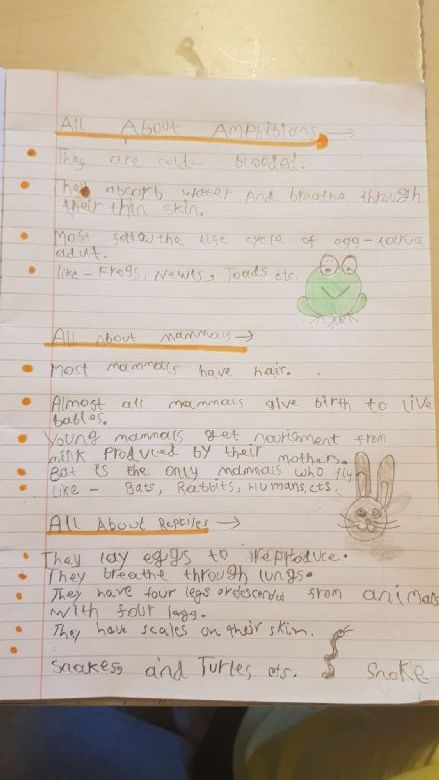 All About Amphibians
They are cold- blooded.
They absorb water and breathe through
their thin skin.
Most follow the life cycle of egg-larva
adult.
like - Frogs, Newts, Toads etc.
All About mammals
Most mammals have hair.
Almost all mammals give birth to live
babies.
Young mammals get nourishment from
milk produced by their mothers.
Bat is the only mammals who fly
Like - Bats, Rabbits, Humans, cts.
All About Reptiles
They lay eggs to reproduce.
They breathe through lungs.
They have four legs or descented from animals
with four legs.
They have scales on their skin.
Snakess and Turles, ets. Snake